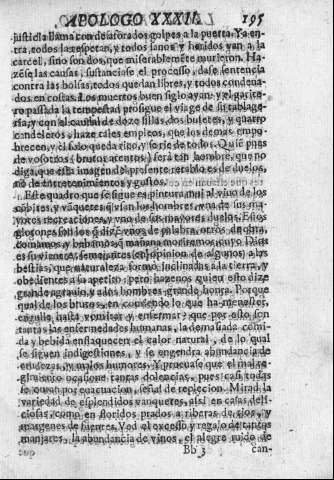 APOLOGO XXXII. 195
justicia llama con desaforados golpes a la puerta. Ya en-
tra, todos la respetan, y todos sanos y heridos van a la
carcel, sino son dos, que miserablemẽte murieron. Ha-
zẽse las causas, sustanciase el processo, dase sentencia
contra las bolsas, todos quedan libres, y todos condena-
dos en costas. Los muertos buen siglo ayan: y el garite-
ro passada la tempestad prosigue el viage de su tablage-
ria, y con el caudal de doze sillas, dos bufetes, y quatro
candeleros, haze tales empleos, que los demas empo-
brecen, y el solo queda rico, y se rie de todos. Quiẽ pues
de vosotros (brutos atentos) será tan hombre, que no
diga, que esta imagen del presente retablo es de duelos,
no de entretenimientos y gustos.
Este quadro que se sigue es pintura muy al viuo de los
combites, y vãquetes que vsan los hombres, vna de sus ma-
yores recreaciones, y vno de sus mayores duelos. Estos
glotones son los q̃ dizẽ vnos de palabra, otros de obra,
comamos, y bebamos, q̃ mañana moriremos, cuyo Dios
es su vientre, semejantes (en opinion de algunos) a las
bestias, que naturaleza formò inclinadas a la tierra, y
obedientes a su apetito; pero hagenos quien esto dize
grande agrauio, y a los hombres grande honra. Porque
qual de los brutos, en comiendo lo que ha menester,
engulle hasta vomitar y enfermar? que por esto son
tantas las enfermedades humanas, la demasiada comi-
da y bebida enflaquecen el calor natural, de lo qual
se siguen indigestiones, y se engendra abundancia de
crudezas, y malos humores. Y prueuase que el mal re-
gimiento ocasione tantas dolencias, pues casi todas
se curan por euacuacion, señal de replecion. Mirad la
variedad de esplendidos vanquetes, assi en casas deli-
ciosas, como en floridos prados a riberas de rios, y
margenes de fuentes. Ved el excesso y regalo de tantos
manjares, la abundancia de vinos, el alegre ruido de
Bb 3 can-